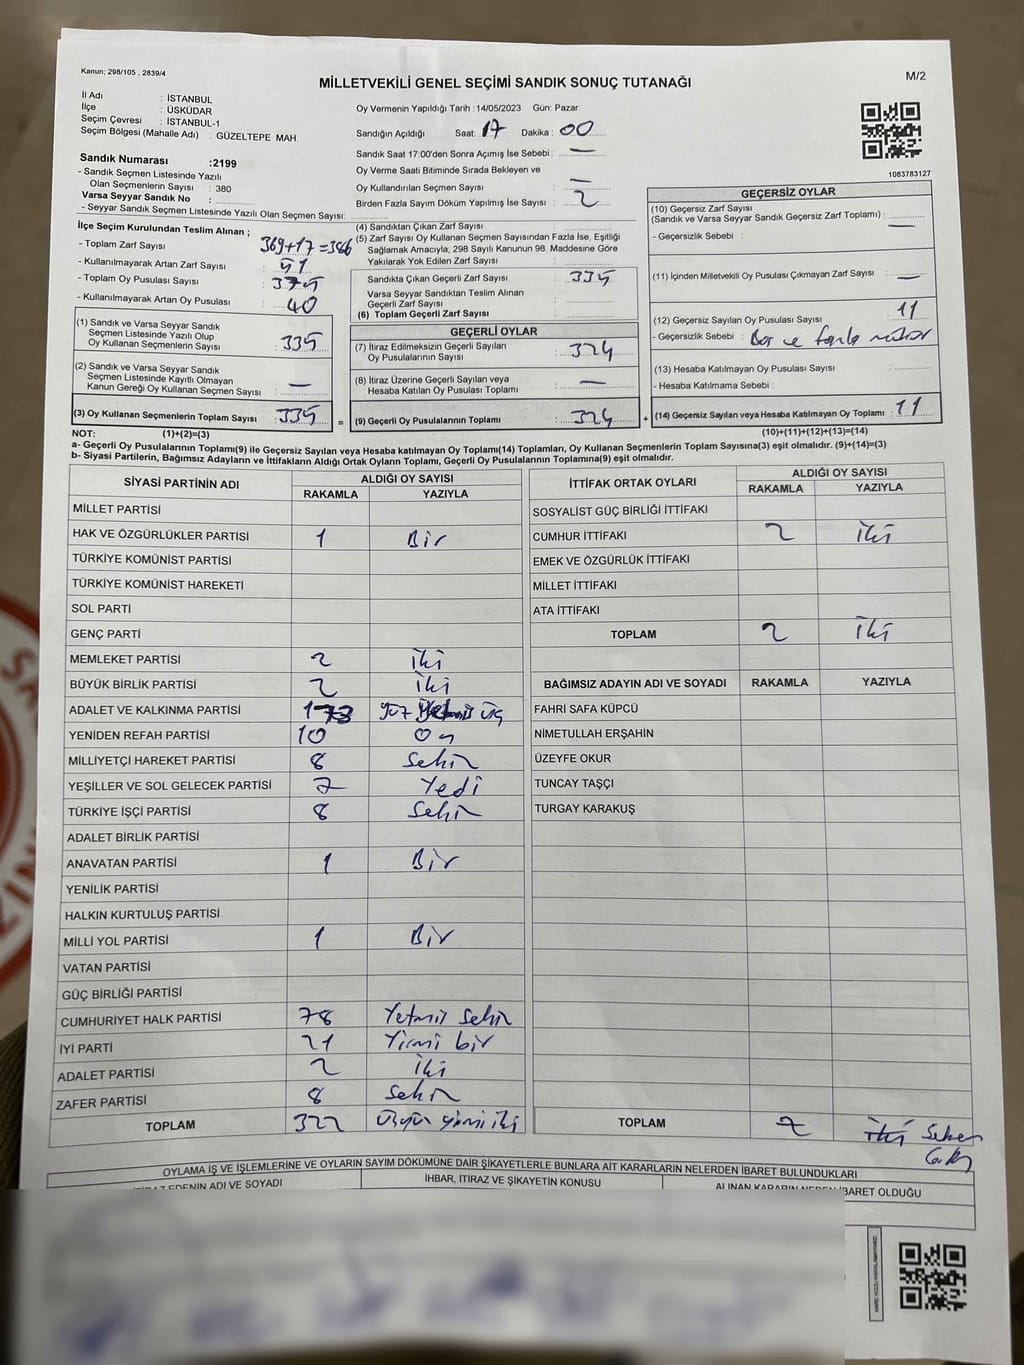 Kanun; 298/105 , 2839/4
M/2
MİLLETVEKİLİ GENEL SEÇİMİ SANDIK SONUÇ TUTANAĞI
İl Adı : İSTANBUL
İlçe : ÜSKÜDAR
Seçim Çevresi : İSTANBUL-1
Seçim Bölgesi (Mahalle Adı) : GÜZELTEPE MAH.
Sandık Numarası :2199
- Sandık Seçmen Listesinde Yazılı
Olan Seçmenlerin Sayısı : 380
Varsa Seyyar Sandık No :
- Seyyar Sandık Seçmen Listesinde Yazılı Olan Seçmen Sayısı:
Oy Vermenin Yapıldığı Tarih : 14/05/2023 Gün: Pazar
Sandığın Açıldığı Saat: 17 Dakika : 00
Sandık Saat 17:00'den Sonra Açımış İse Sebebi : —
Oy Verme Saati Bitiminde Sırada Bekleyen ve
Oy Kullandırılan Seçmen Sayısı —
Birden Fazla Sayım Döküm Yapılmış İse Sayısı : 2
1083783127
İlçe Seçim Kurulundan Teslim Alınan ;
- Toplam Zarf Sayısı 369+17=386
- Kullanılmayarak Artan Zarf Sayısı : 51
- Toplam Oy Pusulası Sayısı : 375
- Kullanılmayarak Artan Oy Pusulası : 40
(1) Sandık ve Varsa Seyyar Sandık
Seçmen Listesinde Yazılı Olup
Oy Kullanan Seçmenlerin Sayısı : 335
(2) Sandık ve Varsa Seyyar Sandık
Seçmen Listesinde Kayıtlı Olmayan
Kanun Gereği Oy Kullanan Seçmen Sayısı : —
(3) Oy Kullanan Seçmenlerin Toplam Sayısı : 335
(4) Sandıktan Çıkan Zarf Sayısı :
(5) Zarf Sayısı Oy Kullanan Seçmen Sayısından Fazla İse, Eşitliği
Sağlamak Amacıyla, 298 Sayılı Kanunun 98. Maddesine Göre
Yakılarak Yok Edilen Zarf Sayısı :
Sandıkta Çıkan Geçerli Zarf Sayısı : 335
Varsa Seyyar Sandıktan Teslim Alınan
Geçerli Zarf Sayısı :
(6) Toplam Geçerli Zarf Sayısı :
GEÇERLİ OYLAR
(7) İtiraz Edilmeksizin Geçerli Sayılan
Oy Pusulalarının Sayısı : 324
(8) İtiraz Üzerine Geçerli Sayılan veya
Hesaba Katılan Oy Pusulası Toplamı : —
= (9) Geçerli Oy Pusulalarının Toplamı : 324
GEÇERSİZ OYLAR
(10) Geçersiz Zarf Sayısı
(Sandık ve Varsa Seyyar Sandık Geçersiz Zarf Toplamı) : —
- Geçersizlik Sebebi :
(11) İçinden Milletvekili Oy Pusulası Çıkmayan Zarf Sayısı : —
(12) Geçersiz Sayılan Oy Pusulası Sayısı : 11
- Geçersizlik Sebebi : Boş ve fazla mühür
(13) Hesaba Katılmayan Oy Pusulası Sayısı :
- Hesaba Katılmama Sebebi :
+ (14) Geçersiz Sayılan veya Hesaba Katılmayan Oy Toplamı : 11
NOT: (1)+(2)=(3) (10)+(11)+(12)+(13)=(14)
a- Geçerli Oy Pusulalarının Toplamı(9) ile Geçersiz Sayılan veya Hesaba katılmayan Oy Toplamı(14) Toplamları, Oy Kullanan Seçmenlerin Toplam Sayısına(3) eşit olmalıdır. (9)+(14)=(3)
b- Siyasi Partilerin, Bağımsız Adayların ve İttifakların Aldığı Ortak Oyların Toplamı, Geçerli Oy Pusulalarının Toplamına(9) eşit olmalıdır.
SİYASİ PARTİNİN ADI ALDIĞI OY SAYISI
RAKAMLA YAZIYLA
MİLLET PARTİSİ
HAK VE ÖZGÜRLÜKLER PARTİSİ 1 Bir
TÜRKİYE KOMÜNİST PARTİSİ
TÜRKİYE KOMÜNİST HAREKETİ
SOL PARTİ
GENÇ PARTİ
MEMLEKET PARTİSİ 2 İki
BÜYÜK BİRLİK PARTİSİ 2 İki
ADALET VE KALKINMA PARTİSİ 173 Yüz Yetmiş Üç
YENİDEN REFAH PARTİSİ 10 On
MİLLİYETÇİ HAREKET PARTİSİ 8 Sekiz
YEŞİLLER VE SOL GELECEK PARTİSİ 7 Yedi
TÜRKİYE İŞÇİ PARTİSİ 8 Sekiz
ADALET BİRLİK PARTİSİ
ANAVATAN PARTİSİ 1 Bir
YENİLİK PARTİSİ
HALKIN KURTULUŞ PARTİSİ
MİLLİ YOL PARTİSİ 1 Bir
VATAN PARTİSİ
GÜÇ BİRLİĞİ PARTİSİ
CUMHURİYET HALK PARTİSİ 78 Yetmiş Sekiz
İYİ PARTİ 21 Yirmi bir
ADALET PARTİSİ 2 İki
ZAFER PARTİSİ 8 Sekiz
TOPLAM 322 Üçyüz yirmi iki
İTTİFAK ORTAK OYLARI ALDIĞI OY SAYISI
RAKAMLA YAZIYLA
SOSYALİST GÜÇ BİRLİĞİ İTTİFAKI
CUMHUR İTTİFAKI 2 İki
EMEK VE ÖZGÜRLÜK İTTİFAKI
MİLLET İTTİFAKI
ATA İTTİFAKI
TOPLAM 2 İki
BAĞIMSIZ ADAYIN ADI VE SOYADI RAKAMLA YAZIYLA
FAHRİ SAFA KÜPCÜ
NİMETULLAH ERŞAHİN
ÜZEYFE OKUR
TUNCAY TAŞÇI
TURGAY KARAKUŞ
TOPLAM 2 İki
OYLAMA İŞ VE İŞLEMLERİNE VE OYLARIN SAYIM DÖKÜMÜNE DAİR ŞİKAYETLERLE BUNLARA AİT KARARLARIN NELERDEN İBARET BULUNDUKLARI
İTİRAZ EDENİN ADI VE SOYADI İHBAR, İTİRAZ VE ŞİKAYETİN KONUSU ALINAN KARARIN NEDEN İBARET OLDUĞU